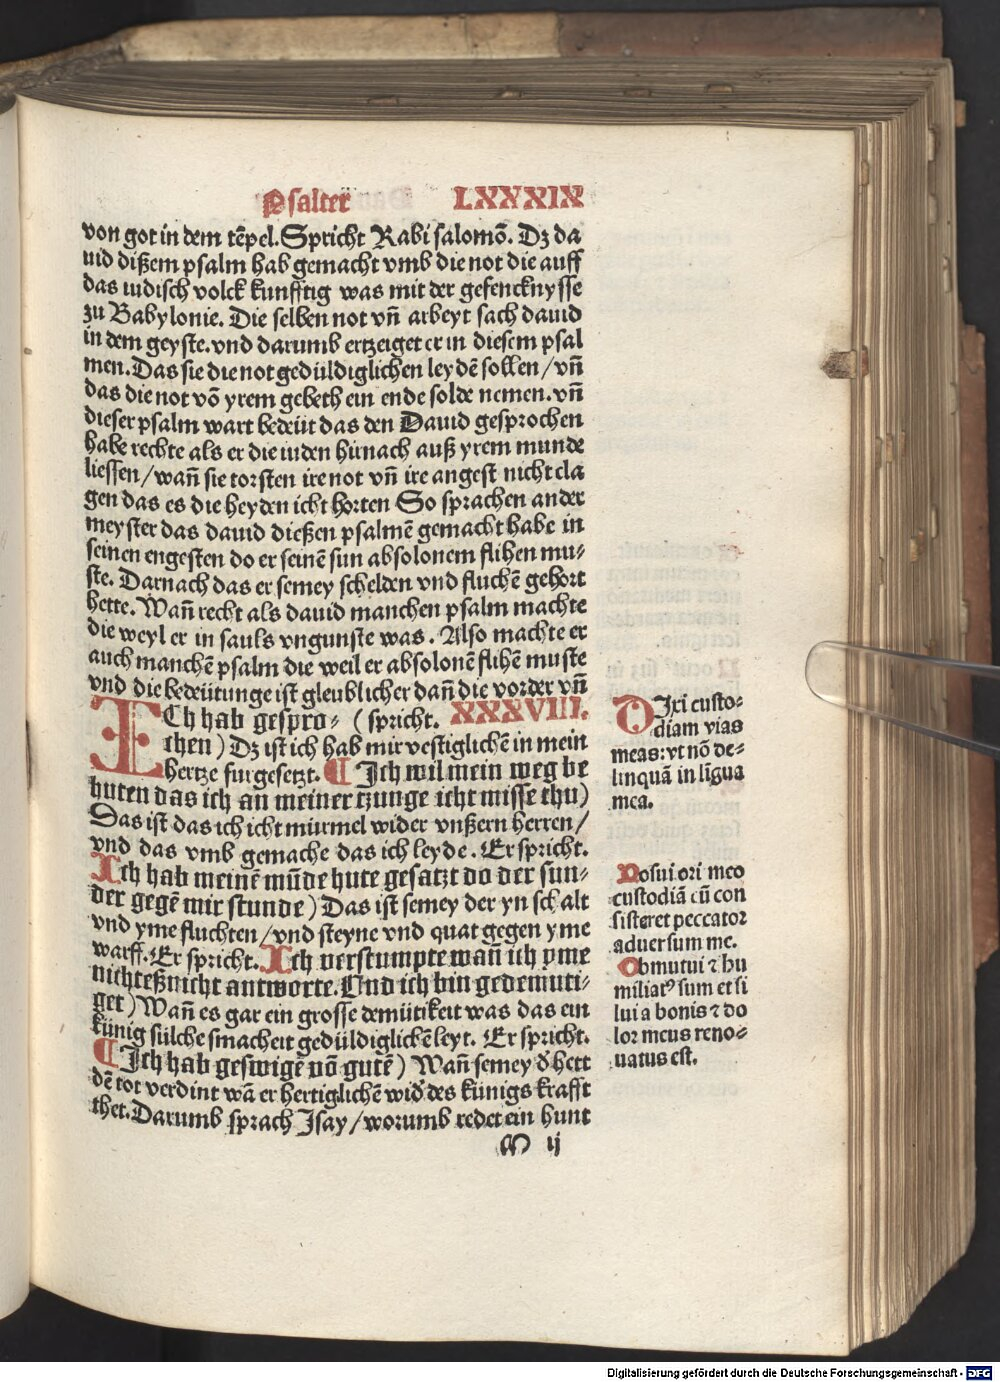 Psalter LXXXIX
von got in dem tēpel. Spricht Rabi salomō. Dz da
uid dißem psalm hab gemacht vmb die not die auff
das iudisch volck kunfftig was mit der gefencknysse
zu Babylonie. Die selben not vñ arbeyt sach dauid
in dem geyste. vnd darumb ertzeiget er in diesem psal
men. Das sie die not gedüldiglichen leydē sollen / vñ
das die not vō yrem gebeth ein ende solde nemen. vñ
dieser psalm wart bedeüt das den Dauid gesprochen
habe rechte als er die iuden hirnach auß yrem munde
liessen / wañ sie torsten ire not vñ ire angest nicht cla
gen das es die heyden icht horten So sprachen ander
meyster das dauid dießen psalmē gemacht habe in
seinen engesten do er seinē sun absolonem flihen mu-
ste. Darnach das er semey schelden vnd fluchē gehort
hette. Wañ recht als dauid manchen psalm machte
die weyl er in sauls vngunste was. Also machte er
auch manchē psalm die weil er absolonē flihē muste
vnd die bedeütunge ist gleublicher dañ die vorder vñ
ECh hab gespro- (spricht. XXXVIII.
chen) Dz ist ich hab mir vestiglichē in mein
hertze fur gesetzt. ¶ Jch wil mein weg be
huten das ich an meiner tzunge icht misse thu)
Das ist das ich icht murmel wider vnßern herren /
vnd das vmb gemache das ich leyde. Er spricht.
Ich hab meinē mūde hute gesatzt do der sun-
der gegē mir stunde) Das ist semey der yn schalt
vnd yme fluchten / vnd steyne vnd quat gegen yme
warff. Er spricht. Ich verstumpte wañ ich yme
nichteß nicht antworte. Vnd ich bin gedemuti-
get) Wañ es gar ein grosse demütikeit was das ein
künig sülche smacheit gedüldiglichē leyt. Er spricht.
¶ Jch hab geswigē vō gutē) Wañ semey d̄ hett
dē tot verdint wā er hertiglichē wid̄ des künigs krafft
thet. Darumb sprach Jsay / worumb redet ein hunt
M ij
DJxi custo-
diam vias
meas: vt nō de-
linquā in līgua
mea.
Posui ori meo
custodiā cū con
sisteret peccator
aduersum me.
Obmutui ⁊ hu
miliatꝰ sum et si
lui a bonis ⁊ do
lor meus reno-
uatus est.
Digitalisierung gefördert durch die Deutsche Forschungsgemeinschaft - DFG